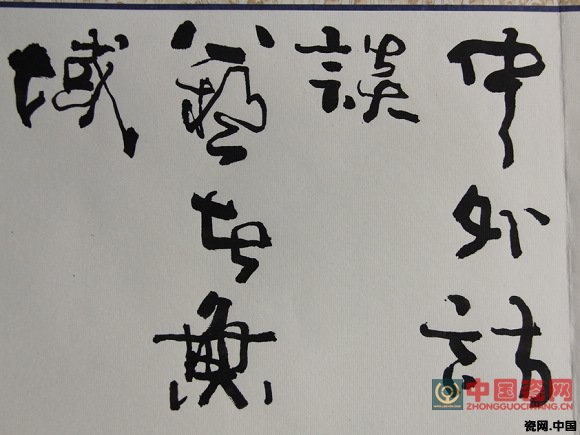 中外訪
談
藝在無
域
中国瓷网
ZHONGGUOCIWANG.CN
瓷网.中国